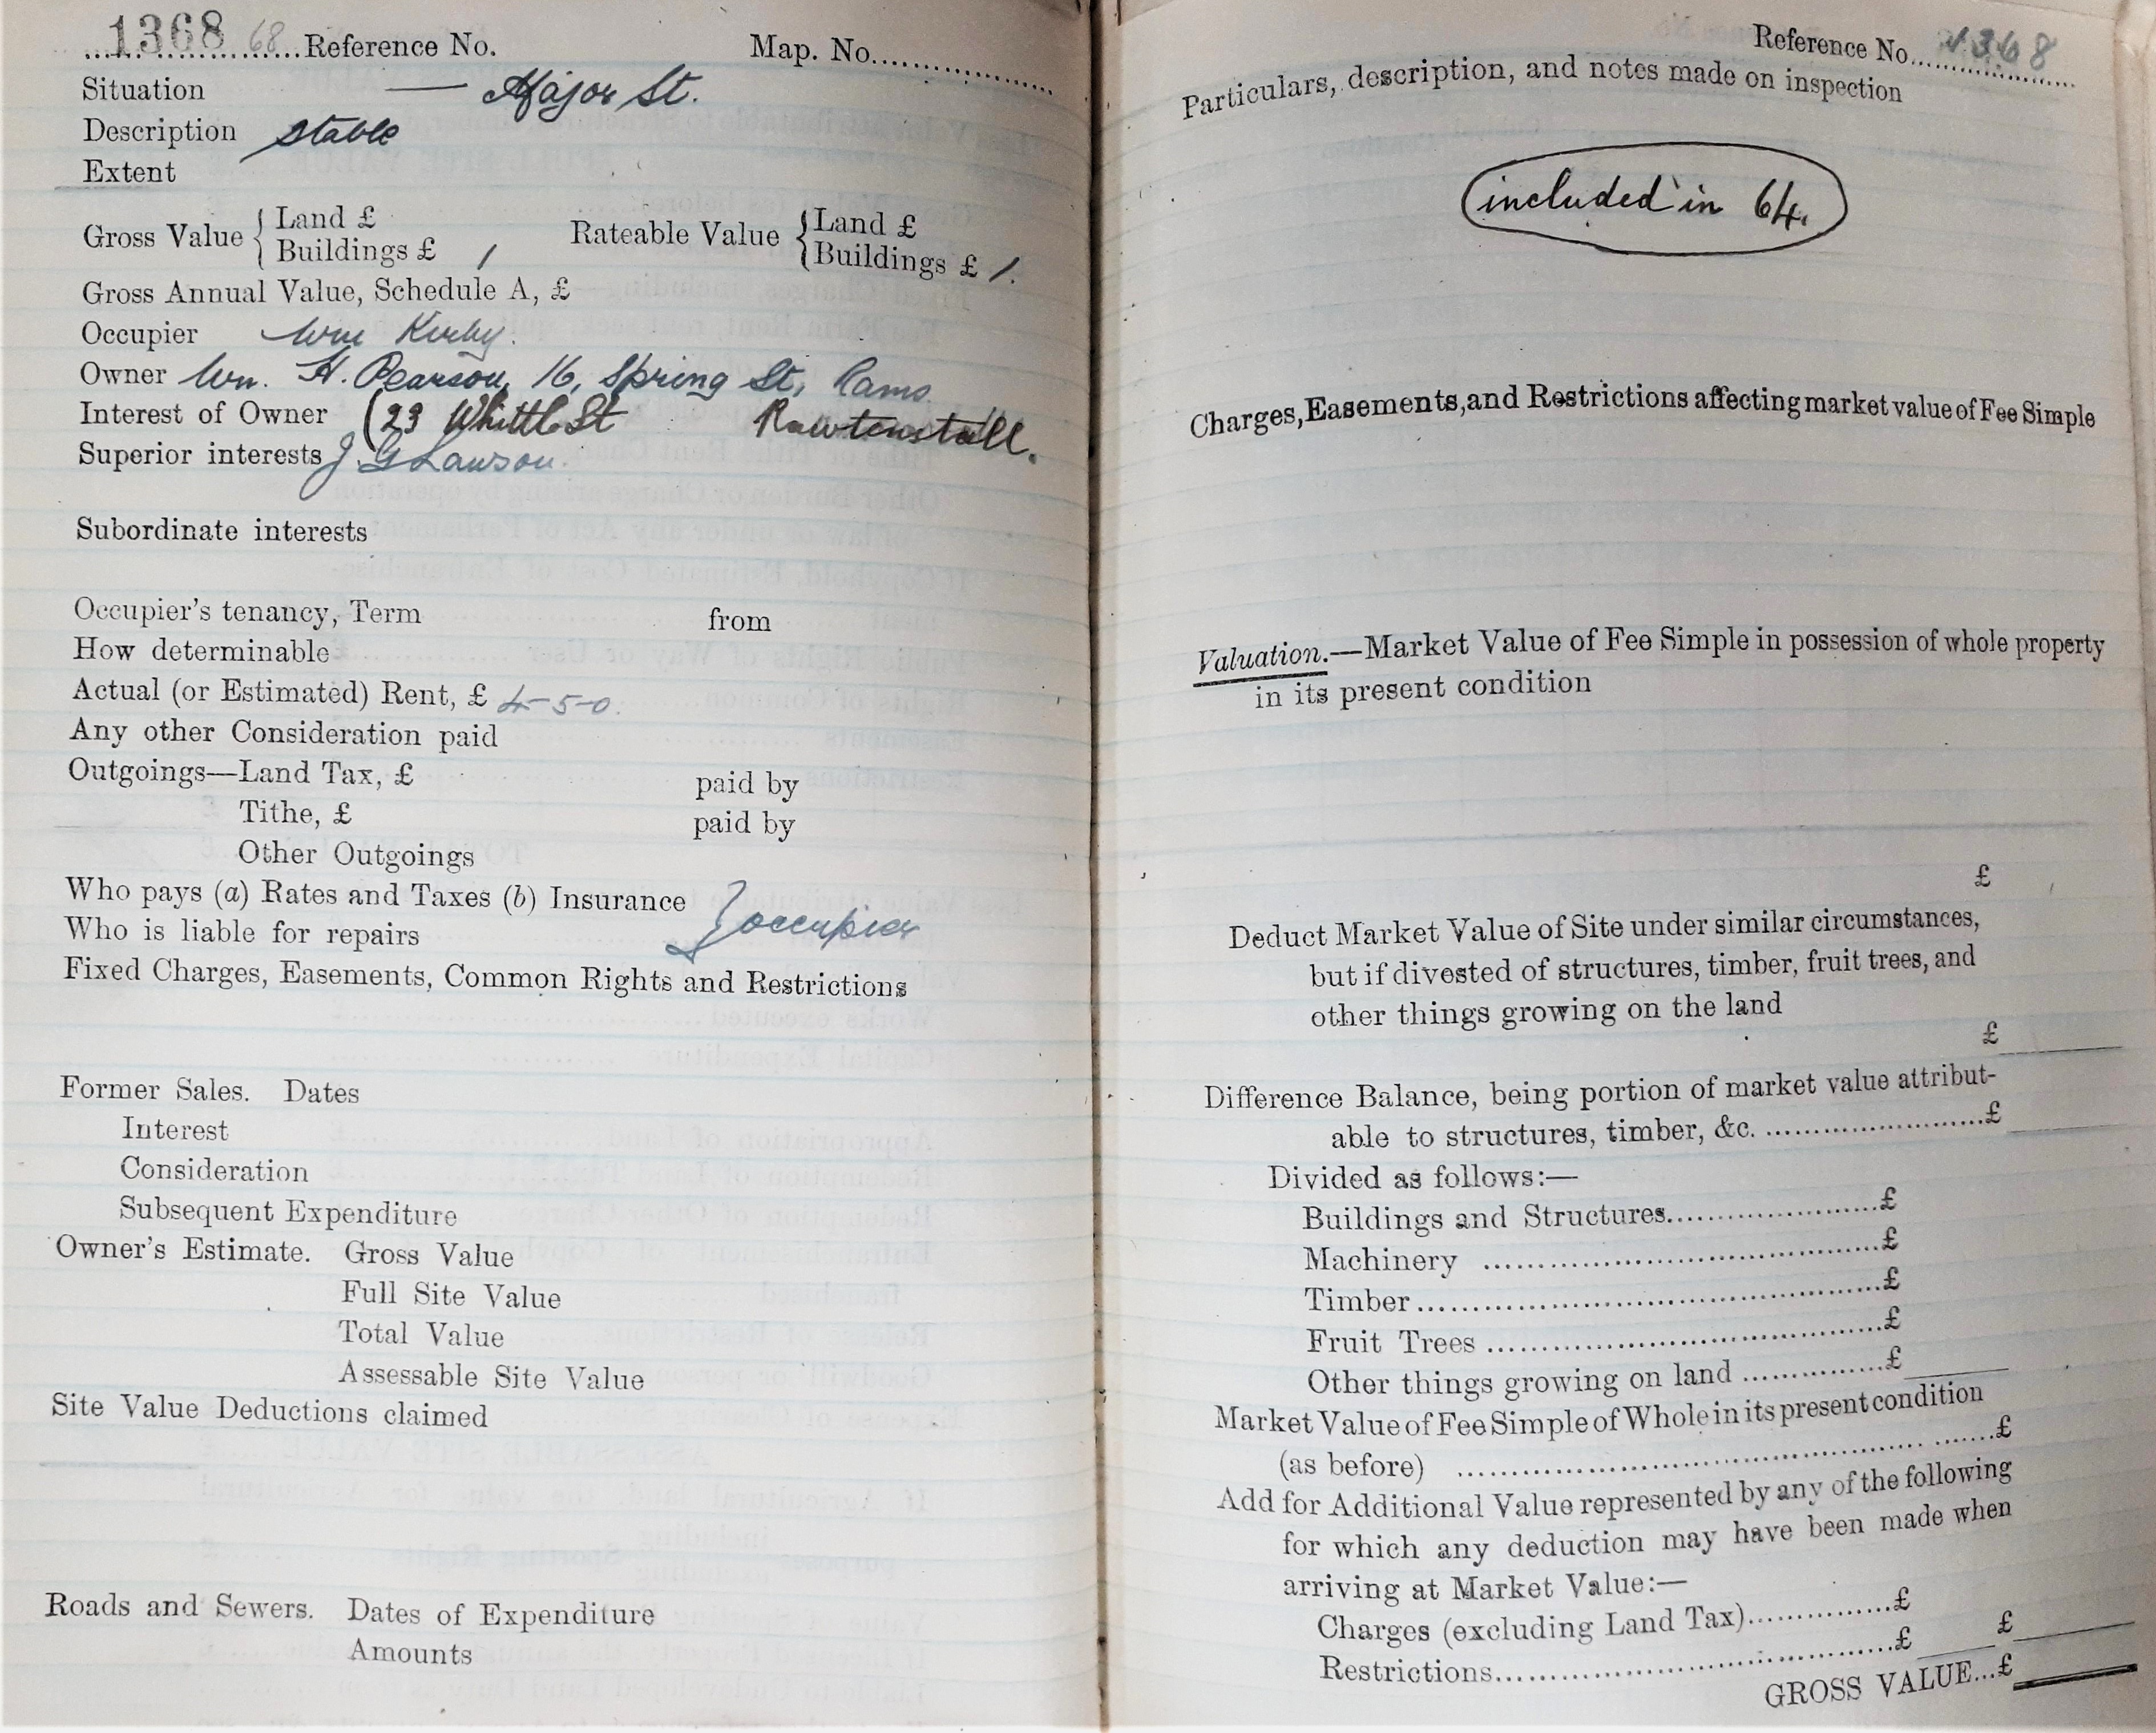 1368 68 Reference No. Map. No.
Situation — Major St.
Description Stable
Extent
Gross Value { Land £ Rateable Value { Land £
Buildings £ 1 Buildings £ 1.
Gross Annual Value, Schedule A, £
Occupier Wm Kirby.
Owner Wm. H. Pearson, 16, Spring St, Rams
Interest of Owner (23 Whittle St Rawtenstall.
Superior interests J. G Lawson.
Subordinate interests
Occupier's tenancy, Term from
How determinable
Actual (or Estimated) Rent, £ 4-5-0.
Any other Consideration paid
Outgoings—Land Tax, £ paid by
Tithe, £ paid by
Other Outgoings
Who pays (a) Rates and Taxes (b) Insurance
Who is liable for repairs } occupier
Fixed Charges, Easements, Common Rights and Restrictions
Former Sales. Dates
Interest
Consideration
Subsequent Expenditure
Owner's Estimate. Gross Value
Full Site Value
Total Value
Assessable Site Value
Site Value Deductions claimed
Roads and Sewers. Dates of Expenditure
Amounts
Reference No. 1368
Particulars, description, and notes made on inspection
included in 64.
Charges, Easements, and Restrictions affecting market value of Fee Simple
Valuation.—Market Value of Fee Simple in possession of whole property
in its present condition
£
Deduct Market Value of Site under similar circumstances,
but if divested of structures, timber, fruit trees, and
other things growing on the land
£
Difference Balance, being portion of market value attribut-
able to structures, timber, &c. £
Divided as follows:—
Buildings and Structures £
Machinery £
Timber £
Fruit Trees £
Other things growing on land £
Market Value of Fee Simple of Whole in its present condition
(as before) £
Add for Additional Value represented by any of the following
for which any deduction may have been made when
arriving at Market Value:—
Charges (excluding Land Tax) £
Restrictions £ £
GROSS VALUE...£